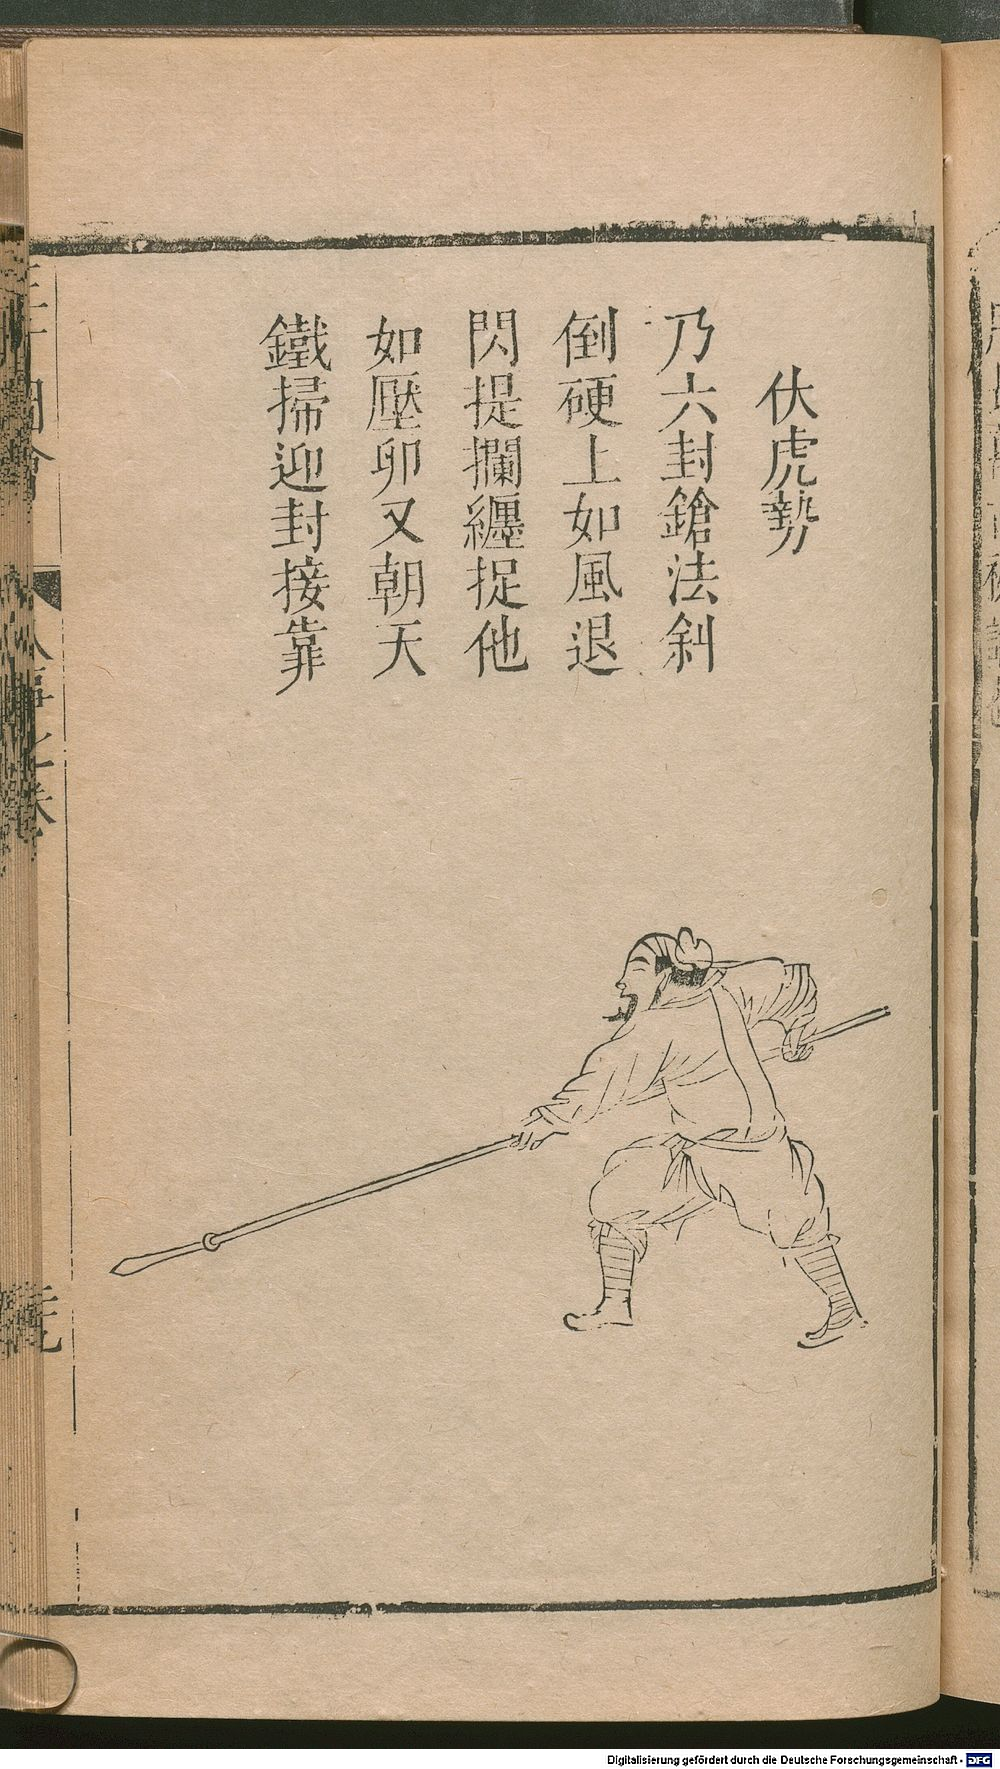 伏虎勢
乃六封鎗法斜
倒硬上如風退
閃提攔纏捉他
如壓卵又朝天
鐵掃迎封接靠
Digitalisierung gefördert durch die Deutsche Forschungsgemeinschaft - DFG